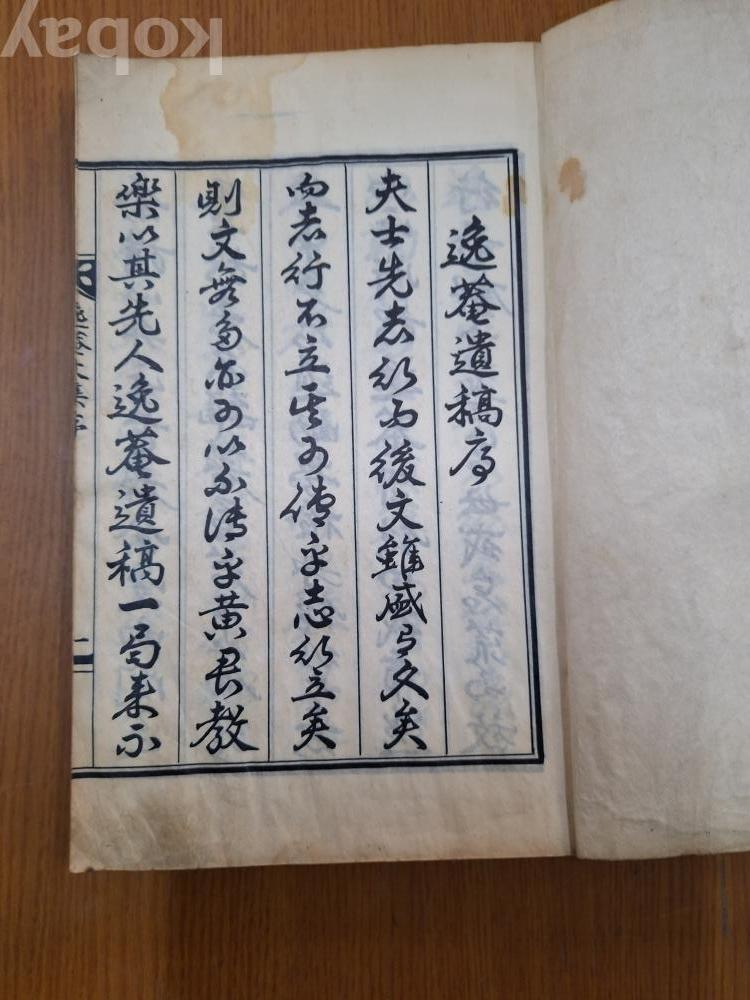 逸菴遺稿序
夫士先志行而後文雖盛有文矣
而志行不立其可傳乎志行立矣
則文無多亦可以不傳乎黃君教
樂以其先人逸菴遺稿一局来示
逸菴文集序
一
kobay